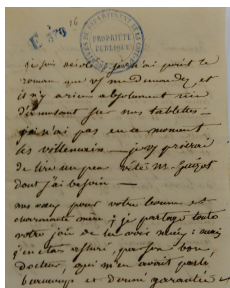 E 379 16
PROPRIÉTÉ
PUBLIQUE
je suis désolé, je n'ai point le
roman que vs me demandez, et
il n'y a rien absolument rien
d'amusant sur nos tablettes —
je n'ai pas en ce moment
les villemain — je vs prierai
de lire un peu vite Mr Guizot
dont j'ai besoin —
vos vœux pour votre bonne et
charmante mère ; je partage toute
votre joie de les avoir : mais
j'en étais assuré, par son bon
Docteur, qui m'en avait parlé
beaucoup et donné garantie